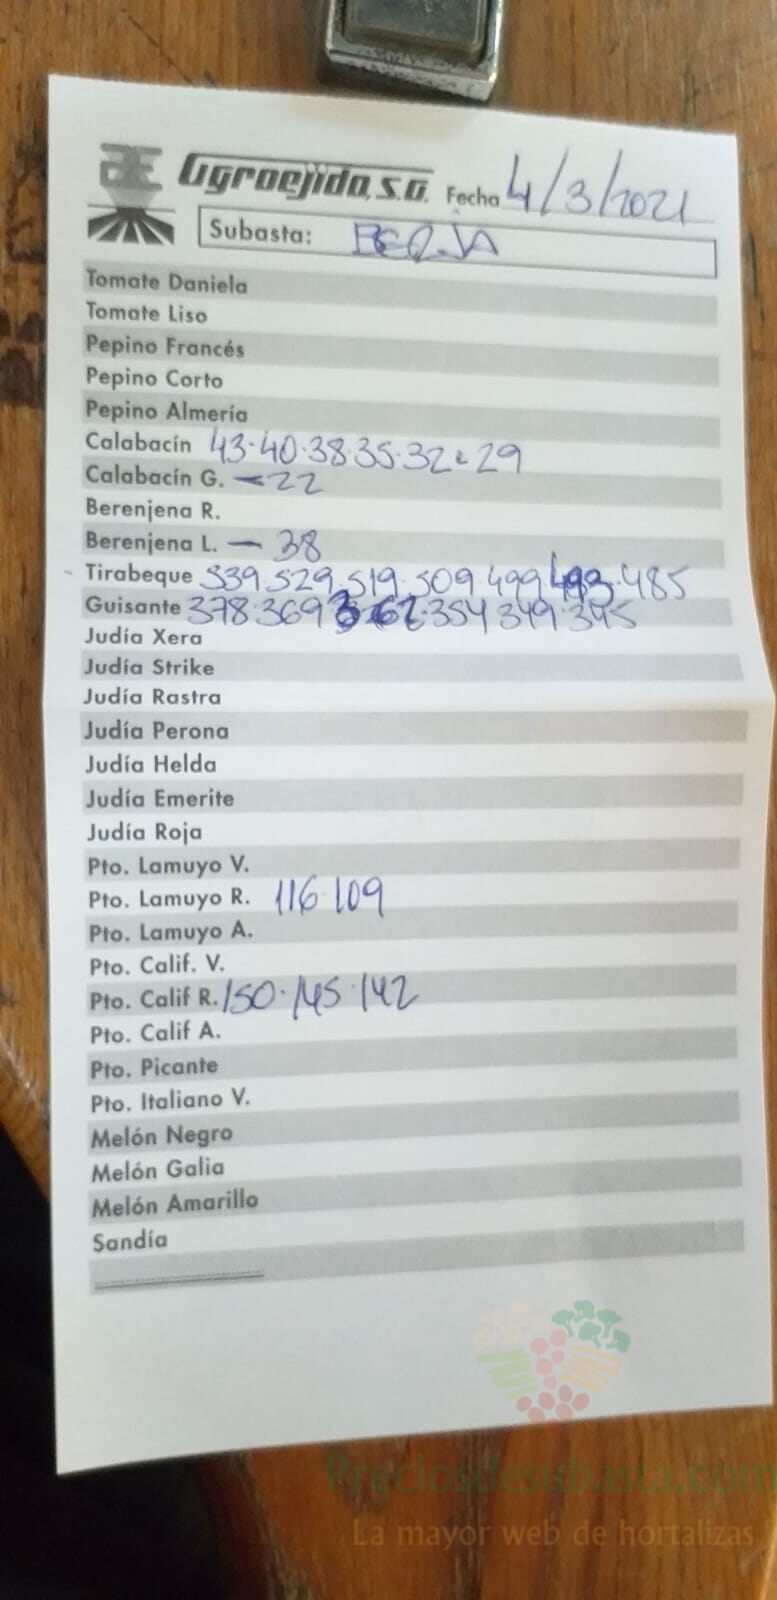 Agroejido, S.A. Fecha 4/3/2021
Subasta: BERJA
Tomate Daniela
Tomate Liso
Pepino Francés
Pepino Corto
Pepino Almería
Calabacín 43·40·38·35·32·29
Calabacín G. —22
Berenjena R.
Berenjena L. — 38
Tirabeque 539·529·519·509·499·493·485
Guisante 378·369·362·354·349·345
Judía Xera
Judía Strike
Judía Rastra
Judía Perona
Judía Helda
Judía Emerite
Judía Roja
Pto. Lamuyo V.
Pto. Lamuyo R. 116·109
Pto. Lamuyo A.
Pto. Calif. V.
Pto. Calif R. 150·145·142
Pto. Calif A.
Pto. Picante
Pto. Italiano V.
Melón Negro
Melón Galia
Melón Amarillo
Sandía
Preciosdesubasta.com
La mayor web de hortalizas